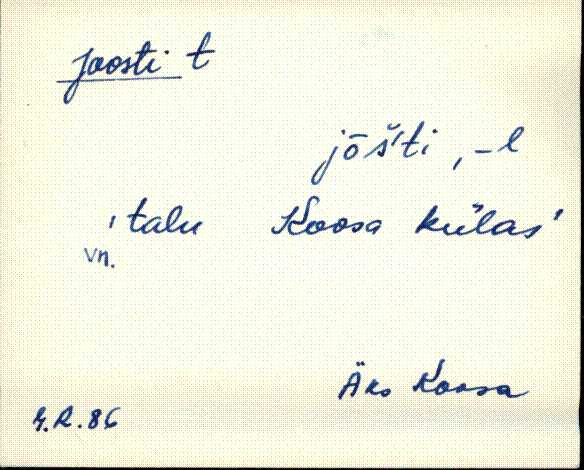 Joosti t
jōš́ti, -l
'talu Koosa külas'
vn.
Äks Koosa
G.R. 86